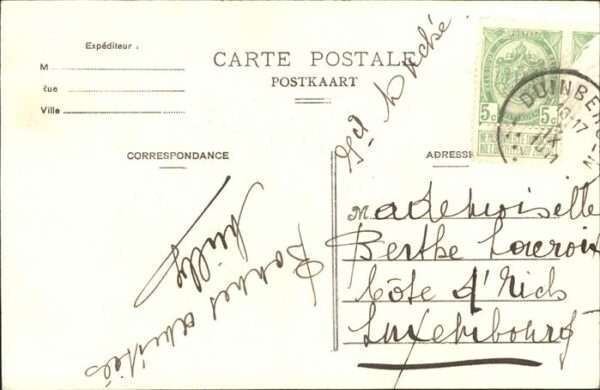 Expéditeur :
M
Rue
Ville
CARTE POSTALE
POSTKAART
CORRESPONDANCE
ADRESS
5c 5c
DUINBERG
Bonnes amitiés
Milly
Mademoiselle
Berthe Lacroix
Côte d'Eich
Luxembourg